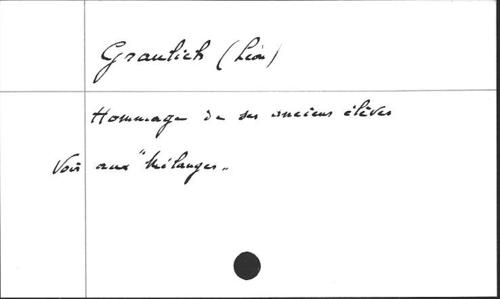 Graulich (Léon)
Hommage de ses anciens élèves
Voir aux "Mélanges"